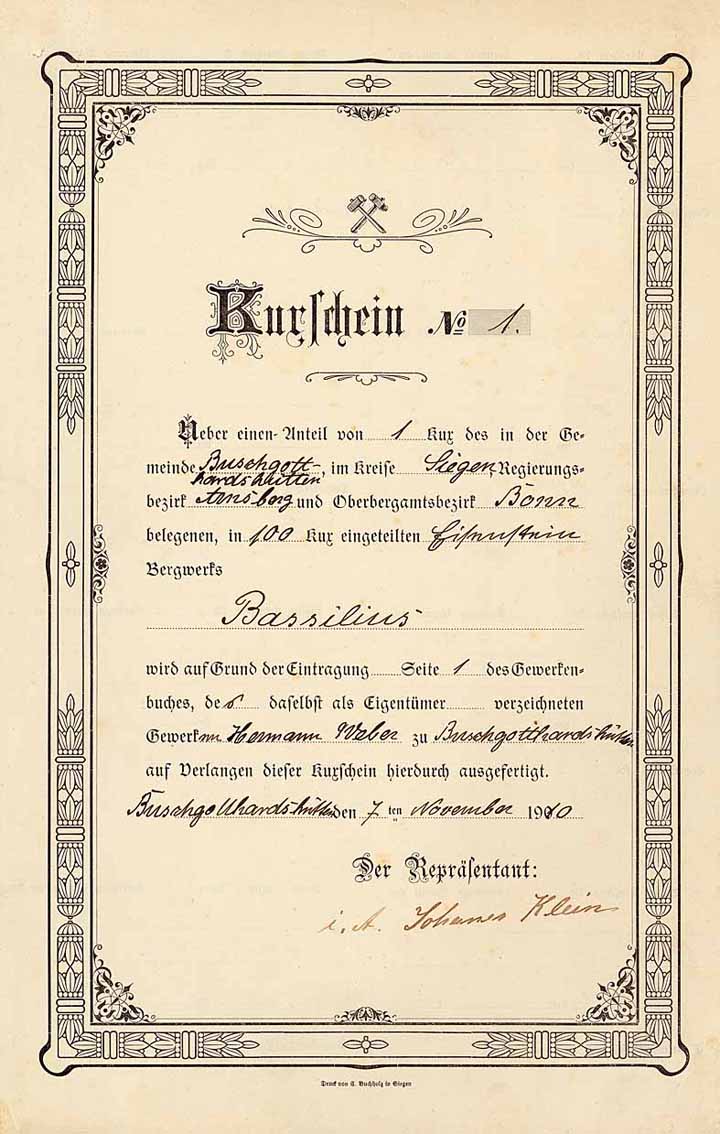 Kuxschein No 1.
Ueber einen Anteil von 1 Kux des in der Ge-
meinde Buschgott-
hardshütten, im Kreise Siegen, Regierungs-
bezirk Arnsberg und Oberbergamtsbezirk Bonn
belegenen, in 100 Kux eingeteilten Eisenstein
Bergwerks
Bassilius
wird auf Grund der Eintragung Seite 1 des Gewerken-
buches, des daselbst als Eigentümer verzeichneten
Gewerken Hermann Weber zu Buschgotthardshütten
auf Verlangen dieser Kuxschein hierdurch ausgefertigt.
Buschgotthardshütten den 7 ten November 1910
Der Repräsentant:
i. A. Johannes Klein
Druck von S. Buchholz in Siegen